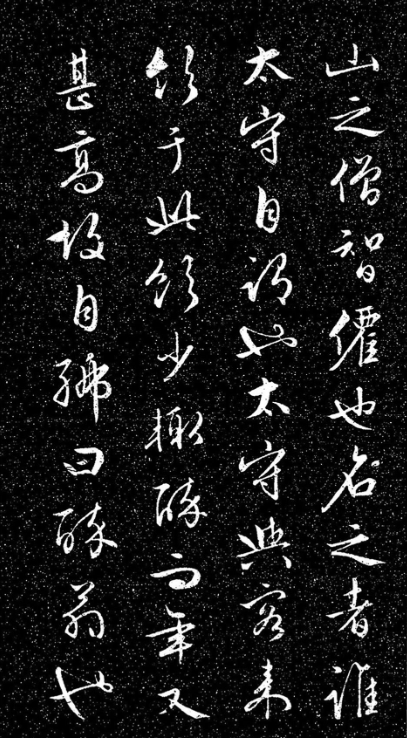 山之僧智僊也名之者誰
太守自謂也太守與客来
飲于此飲少輒醉而年又
甚高故自號曰醉翁也